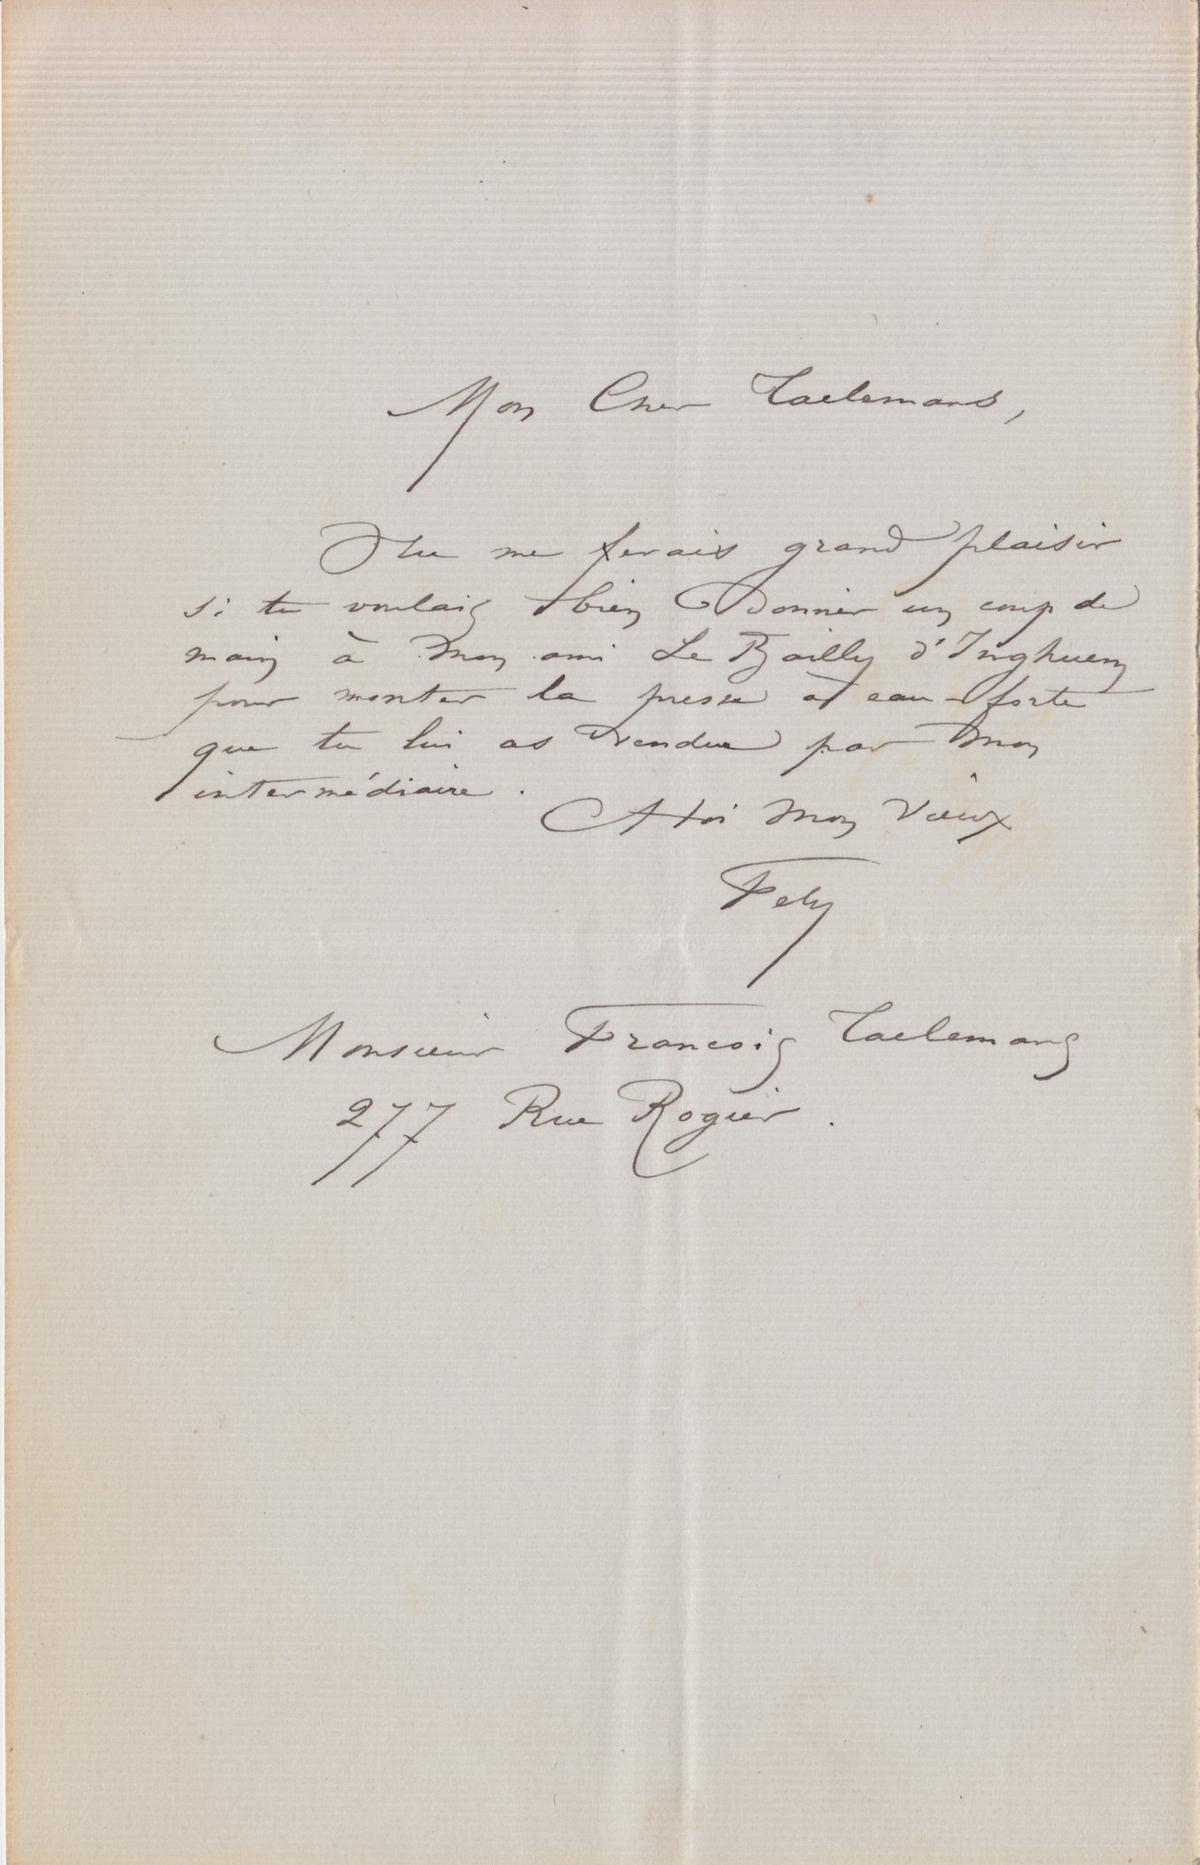 Mon Cher Taelemans,
Tu me ferais grand plaisir
si tu voulais bien donner un coup de
main à mon ami Le Bailly d'Inghuem
pour monter la presse à eau-forte
que tu lui as vendue par mon
intermédiaire.
A toi mon vieux
Fely
Monsieur Francois Taelemans
277 Rue Rogier.